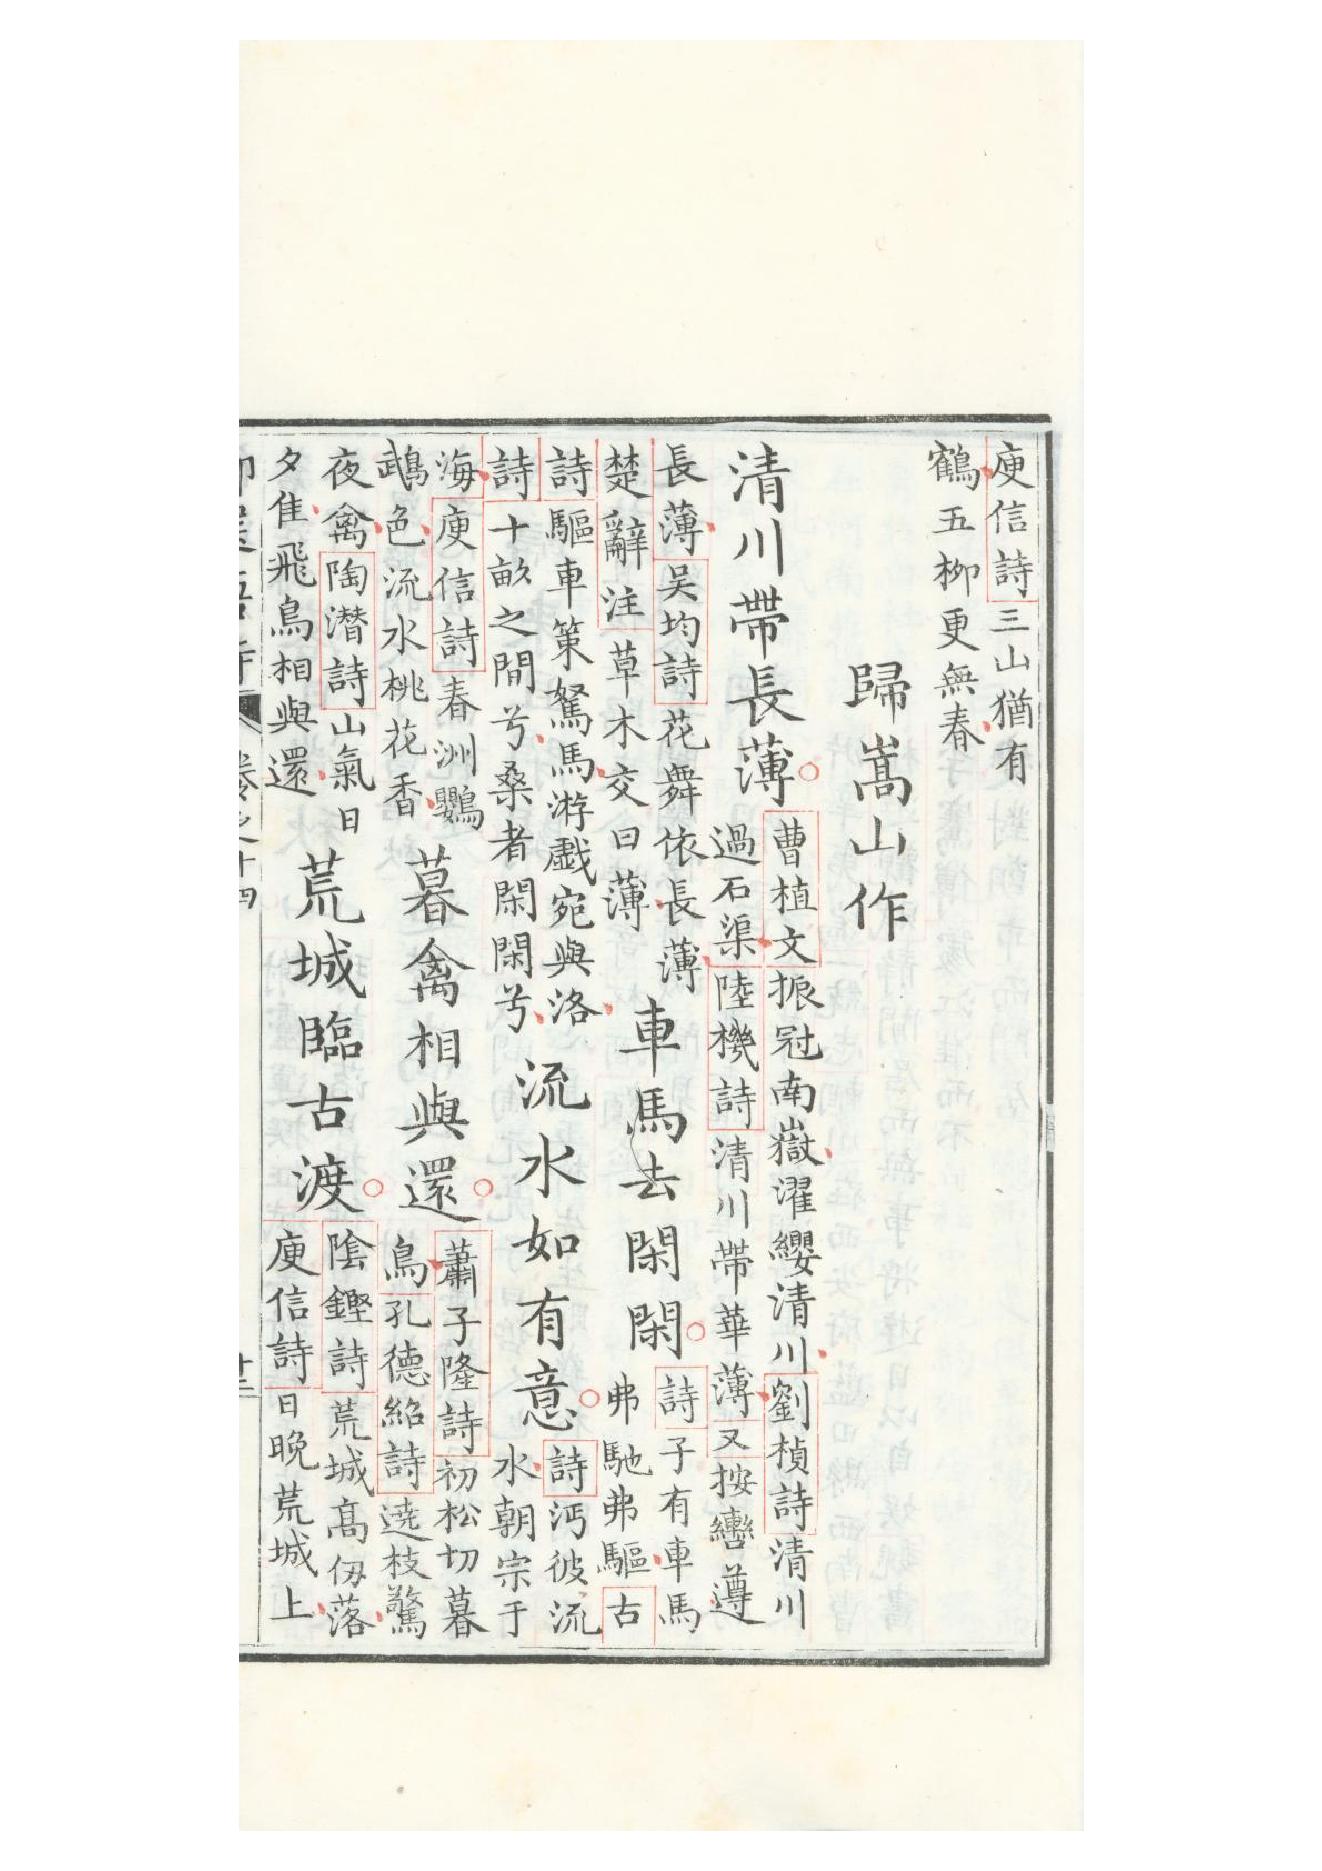 庾信詩三山猶有
鶴五柳更無春
歸嵩山作
清川帶長薄
曹植文振冠南嶽濯纓清川劉楨詩清川
過石渠陸機詩清川帶華薄又按轡遵
長薄吴均詩花舞依長薄
楚辭注草木交曰薄
車馬去閑閑
詩子有車馬
弗馳弗驅古
詩驅車策駑馬游戲宛與洛
詩十畝之間兮桑者閑閑兮
流水如有意
詩沔彼流
水朝宗于
海庾信詩春洲鸚
鵡色流水桃花香
暮禽相與還
蕭子隆詩初松切暮
鳥孔德紹詩遶枝驚
夜禽陶潛詩山氣日
夕隹飛鳥相與還
荒城臨古渡
陰鏗詩荒城高仞落
庾信詩日晚荒城上
卷之十四